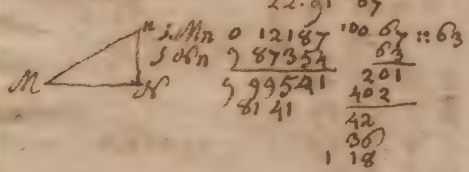 22.91 07
n s.Mn 0 12187 100 67 :: 63
s Nn 9 87354 63
M N 9 99541 201
81 41 402
42
36
1 18